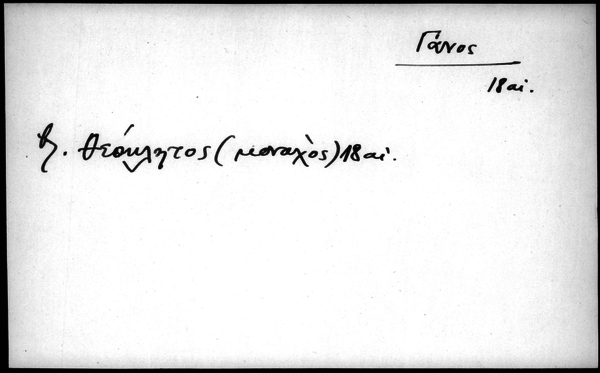 Γάνος
18 αἰ.
βλ. Θεόκλητος (μοναχὸς) 18 αἰ.